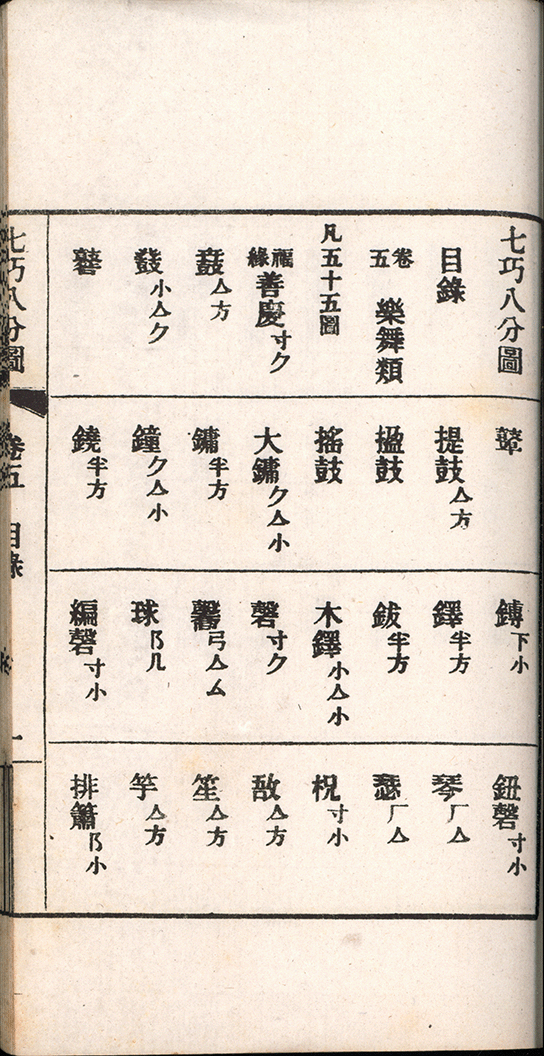 七巧八分圖
目錄
卷五 樂舞類
凡五十五圖
福緣善慶 寸ク
鼖 △方
小△ク
鼛
鼙
提鼓 △方
楹鼓
搖鼓
大鏞 ク△小
鏞 半方
鐘 ク△小
鐃 半方
鎛 下小
鐸 半方
鈸 半方
木鐸 小△小
磬 寸ク
弓△ム
球 阝几
編磬 寸小
鈕磬 寸小
琴 厂△
瑟 厂△
柷 寸小
敔 △方
笙 △方
竽 △方
排簫 阝小
七巧八分圖 卷五 目錄 一